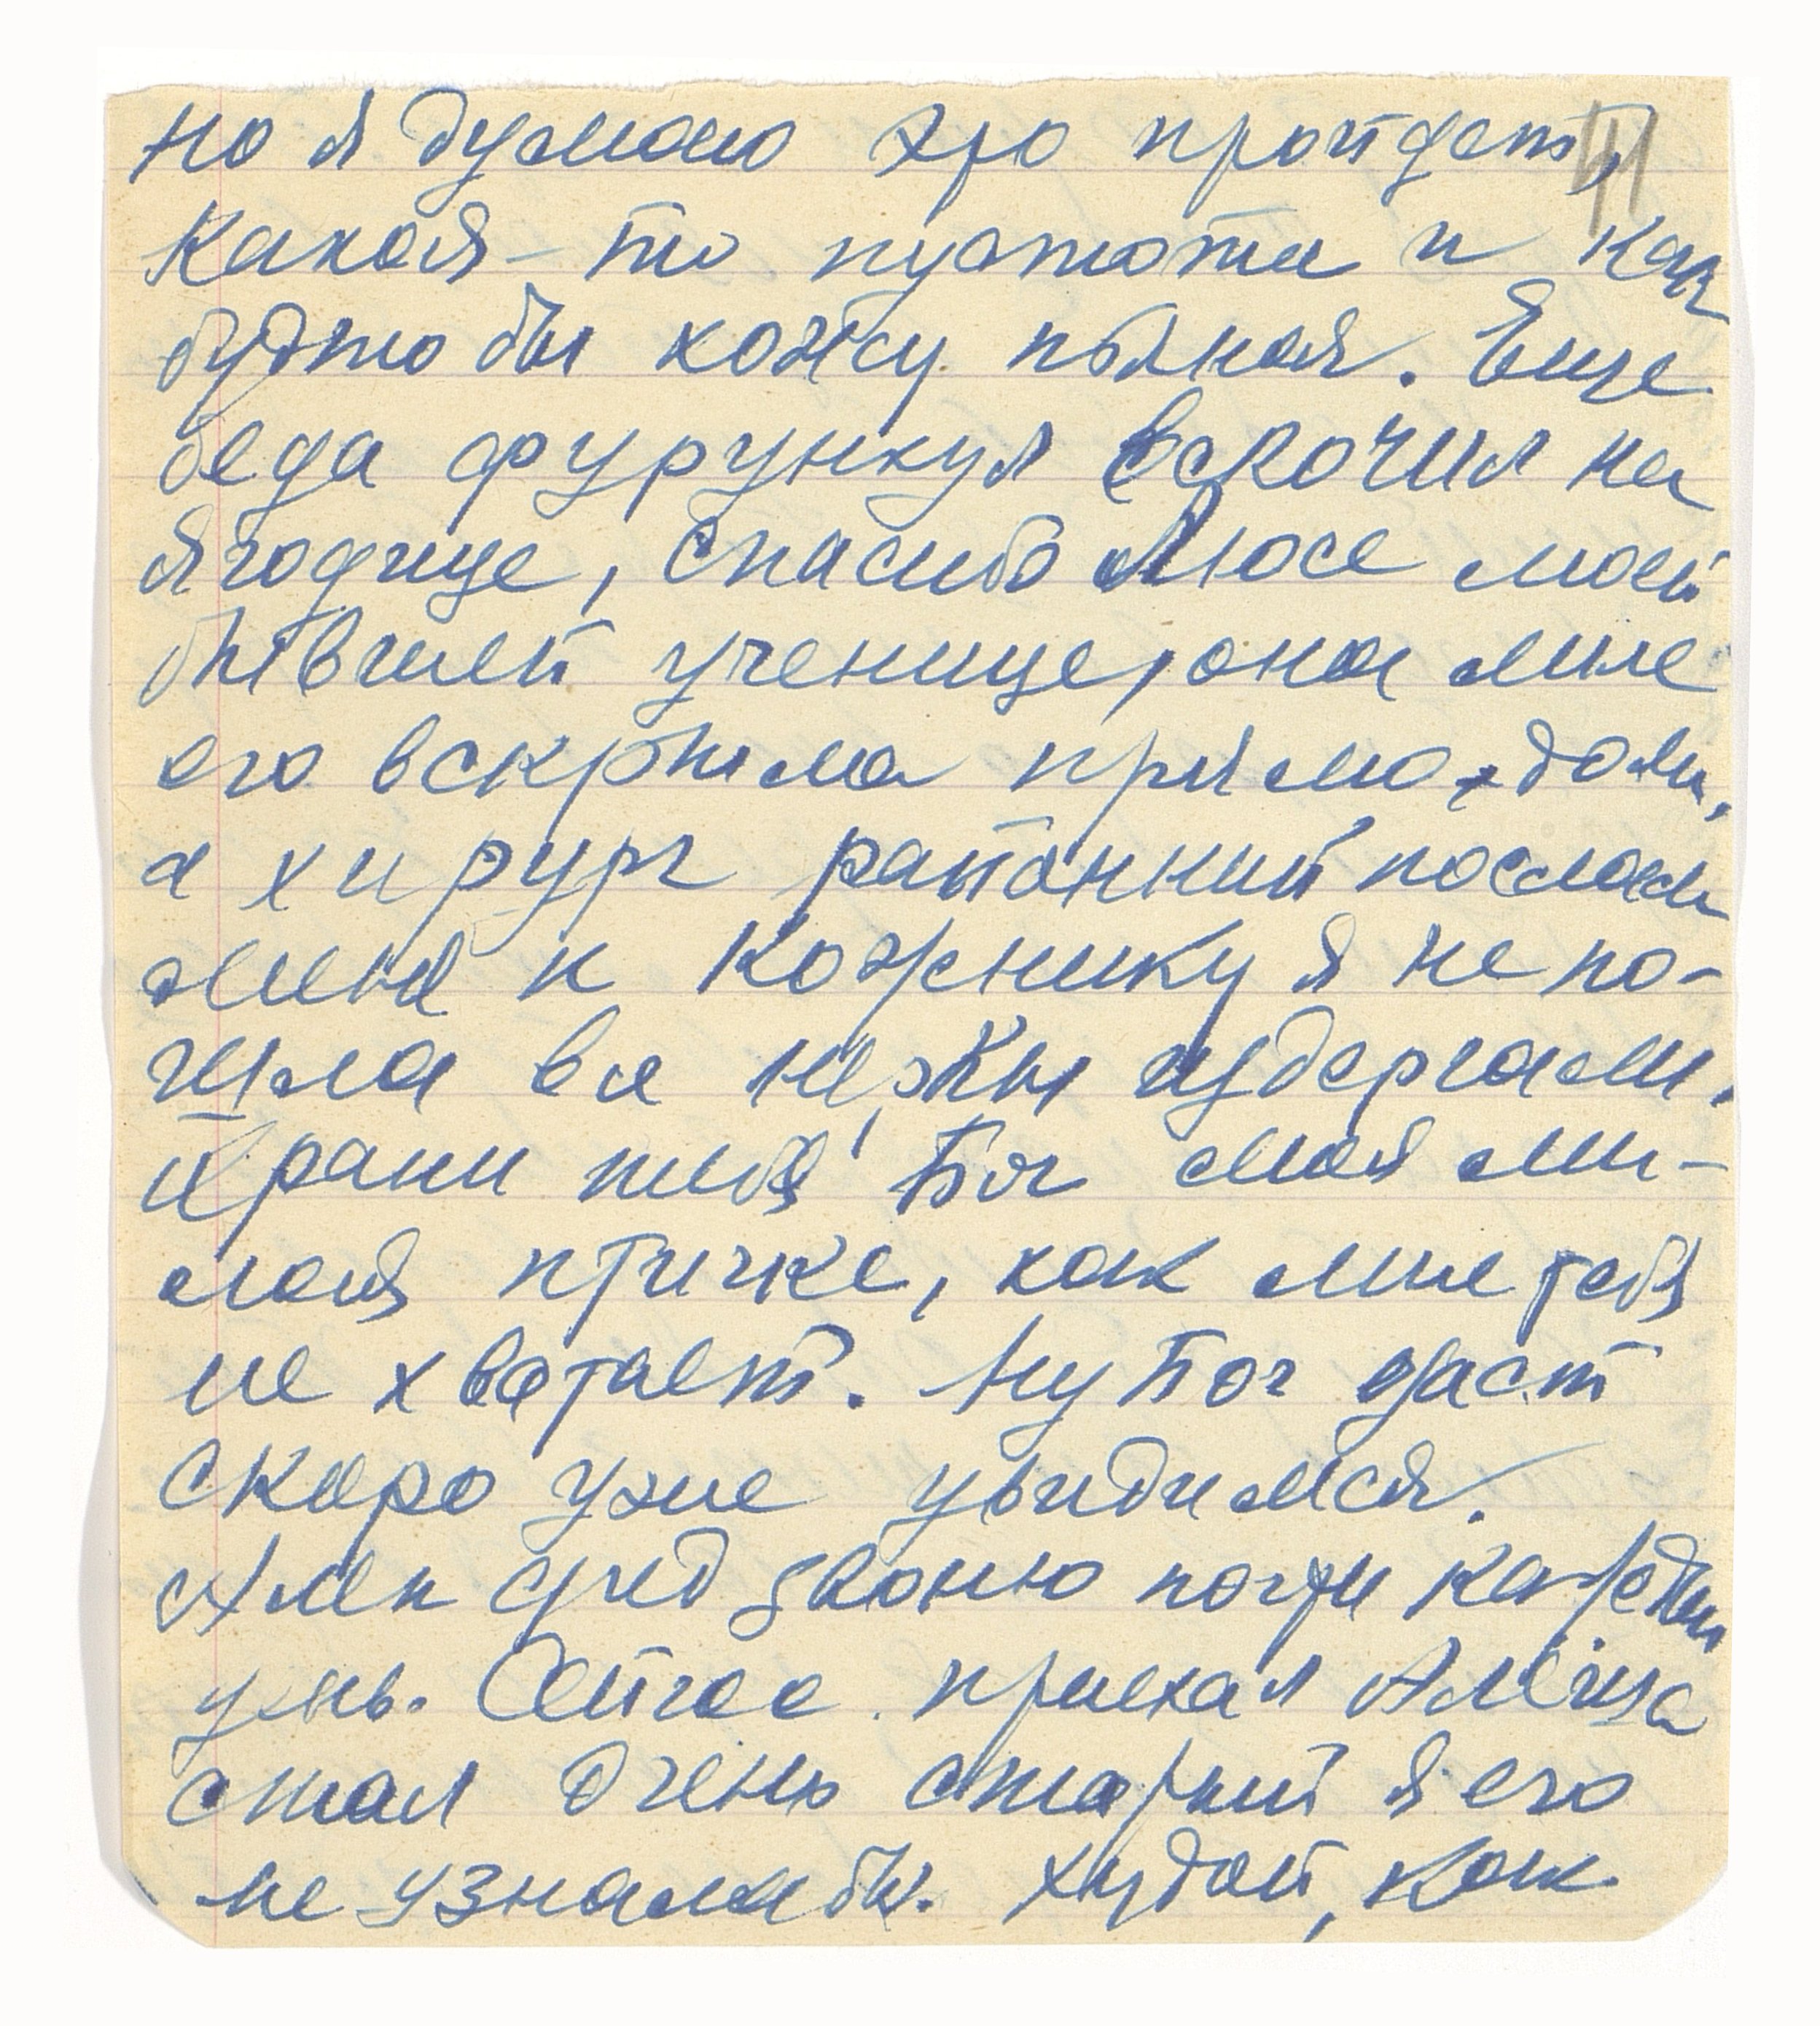 но я думаю это пройдет,
41
какая-то пустота и как
будто бы хожу пьяная. Еще
беда фурункул вскочил на
ягодице, спасибо Люсе моей
бывшей ученице, она мне
его вскрыла прямо дома,
а хирург районный послал
меня к кожнику я не по-
шла все нервы издергали.
Храни тебя Бог моя ми-
лая птичка, как мне тебя
не хватает. Ну Бог даст
скоро уже увидимся.
звоню почти каждый
день. Сейчас приехал Алёша
стал очень старый я его
не узнала бы. Худой, как